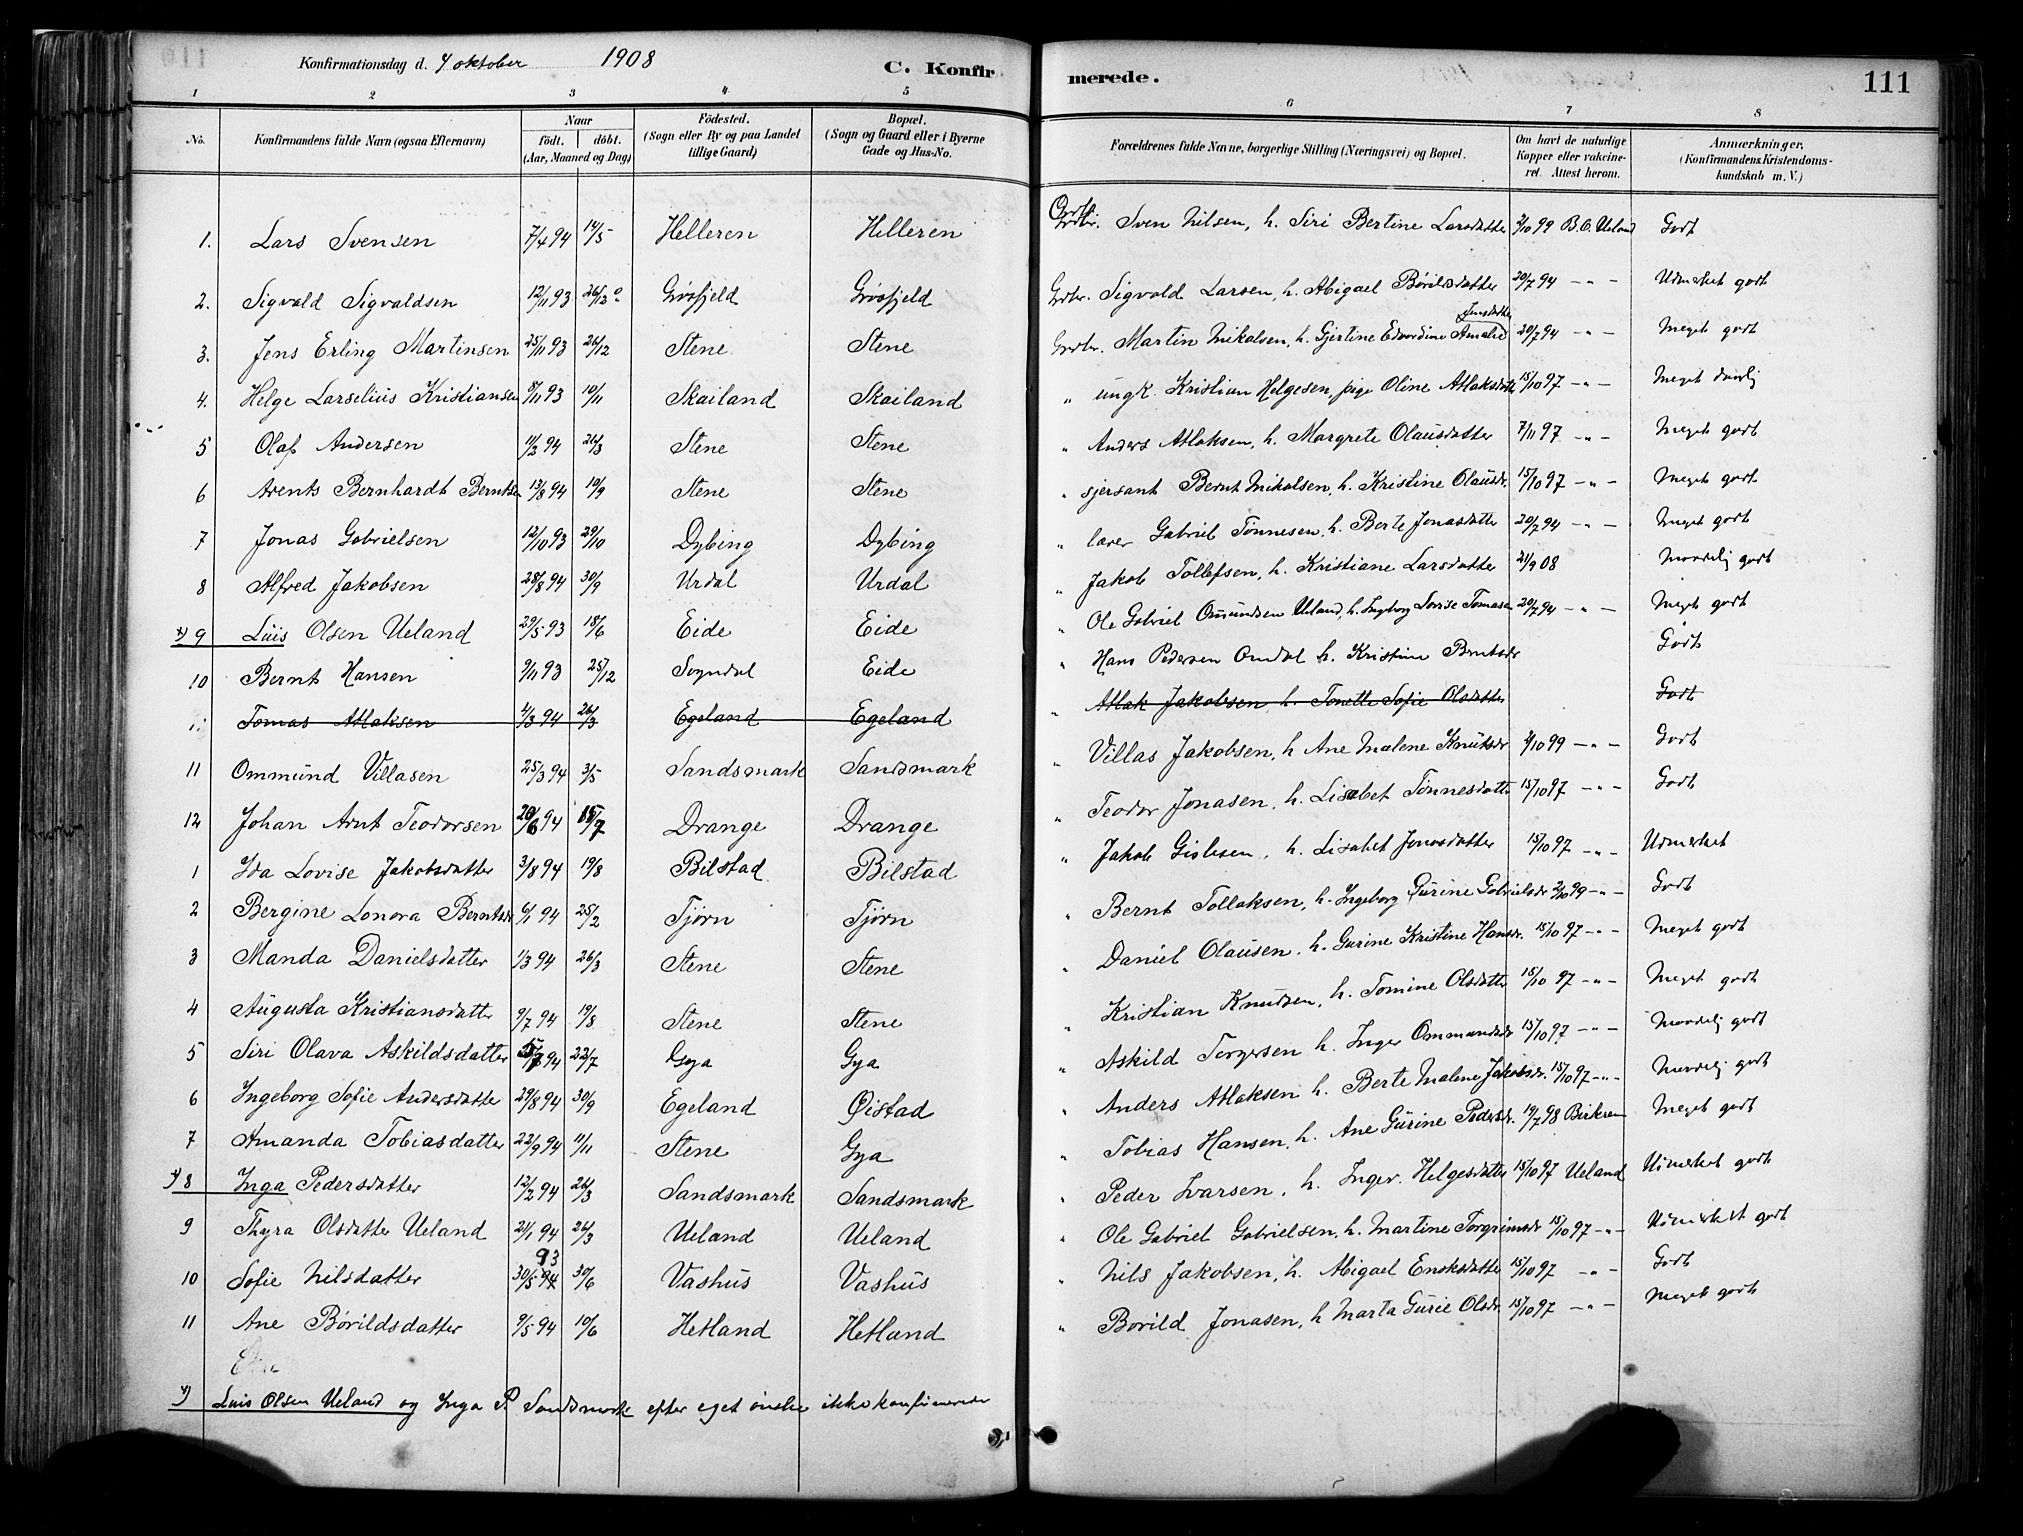 Konfirmationsdag d. 4 oktober 1908 C. Konfirmerede. 111
1 2 3 4 5 6 7 8
No. Konfirmandens fulde Navn (ogsaa Efternavn) Naar födt. döbt. (Aar, Maaned og Dag) Födested. (Sogn eller By og paa Landet tillige Gaard) Bopæl. (Sogn og Gaard eller i Byerne Gade og Hus-No. Forældrenes fulde Navne, borgerlige Stilling (Næringsvei) og Bopæl. Om havt de naturlige Kopper eller vakcineret. Attest herom. Anmærkninger. (Konfirmandens Kristendomskundskab m. V.)
1. Lars Svensen 7/4 94 14/5 Helleren Helleren Grdbr. Sven Nilsen, h. Siri Bertine Larsdatter 2/10 99 B.O. Ueland Godt
2. Sigvald Sigvaldsen 12/11 93 26/3 Grøsfjeld Grøsfjeld Grdbr. Sigvald Larsen, h. Abigael Børildsdatter 20/7 94 -"- Udmerket godt
3. Jens Erling Martinsen 25/11 93 26/12 Stene Stene Grdbr. Martin Mikalsen, h. Gjertine Edvardine Amalie Jensdatter 20/7 94 " - Meget godt
4. Helge Larselius Kristiansen 8/11 93 10/11 Skailand Skailand " ungk. Kristian Helgesen, pige Oline Atlaksdatter 15/10 97 -"- Meget daarlig
5 Olaf Andersen 11/2 94 26/3 Stene Stene " Anders Atlaksen, h. Margrete Olausdatter 7/11 97 -"- Meget godt
6 Arents Bernhardt Berntsen 13/8 94 10/9 Stene Stene " sjersant Bernt Mikalsen, h. Kristine Olausdr. 15/10 97 -"- Meget godt
7 Jonas Gabrielsen 12/10 93 29/10 Dybing Dybing " lærer Gabriel Tønnesen, h. Berte Jonasdatter 20/7 94 -"- Meget godt
8 Alfred Jakobsen 28/8 94 30/9 Urdal Urdal " Jakob Tollefsen, h. Kristiane Larsdatter 21/9 08 Maadelig godt
x) 9 Luis Olsen Ueland 29/5 93 18/6 Eide Eide " Ole Gabriel Omundsen Ueland, h. Ingborg Lovise Tomasen 20/7 94 -"- Meget godt
10 Bernt Hansen 9/11 93 25/12 Sogndal Eide " Hans Pedersen Omdal h. Kristine Berntsdr Godt
Tomas Atlaksen 4/3 94 26/3 Egeland Egeland " Atlak Jakobsen h. Tonette Sofie Olsdatter Godt
11 Ommund Villasen 25/3 94 3/5 Sandsmark Sandsmark " Villas Jakobsen, h. Ane Malene Knutsdr 2/10 99 -"- Godt
12 Johan Arnt Teodorsen 20/6 94 15/7 Drange Drange " Teodor Jonasen, h. Lisabet Tønnesdatter 15/10 97 -"- Godt
1 Ida Lovise Jakobsdatter 3/8 94 19/8 Bilstad Bilstad " Jakob Gislesen, h. Lisabet Jonasdatter 15/10 97 -"- Udmerket
2 Bergine Lonora Berntsdr 6/1 94 25/2 Tjørn Tjørn " Bernt Tollaksen, h. Ingeborg Gurine Gabrielsdr 2/10 99 -"- Godt
3 Manda Danielsdatter 1/3 94 26/3 Stene Stene " Daniel Olausen, h. Gurine Kristine Hansdr. 15/10 97 -"- Meget godt
4 Augusta Kristiansdatter 9/7 94 19/8 Stene Stene " Kristian Knudsen, h. Tomine Olsdatter 15/10 97 -"- Meget godt
5 Siri Olava Askildsdatter 5/7 94 22/7 Gya Gya " Askild Torgersen h. Inger Ommundsdr 15/10 97. -"- Maadelig godt
6 Ingeborg Sofie Andersdatter 29/8 94 30/9 Egeland Øistad " Anders Atlaksen h. Berte Malene Jakobsdr. 15/10 97 -"- Maadelig godt
7 Amanda Tobiasdatter 22/9 94 11/11 Stene Gya " Tobias Hansen, h. Ane Gurine Pedersdr. 19/7 98 Birkrem Meget godt
x) 8 Inga Pedersdatter 12/2 94 26/3 Sandsmark Sandsmark " Peder Ivarsen, h. Inger Helgesdatter 15/10 97 Ueland Udmerket godt
9 Thyra Olsdatter Ueland 21/1 94 26/3 Ueland Ueland " Ole Gabriel Gabrielsen, h. Martine Torgrimsdr 15/10 97 -"- Udmerket godt
10 Sofie Nilsdatter 30/5 94 93 30/6 Vashus Vashus " Nils Jakobsen, h. Abigael Enoksdatter 15/10 97 -"- Godt
11 Ane Børildsdatter 9/5 94 10/6 Hetland Hetland " Børild Jonasen, h Marta Gurie Olsdr. 15/10 97 -"- Meget godt
x) Luis Olsen Ueland og Inga P. Sandsmark efter eget ønske ikke konfirmerede